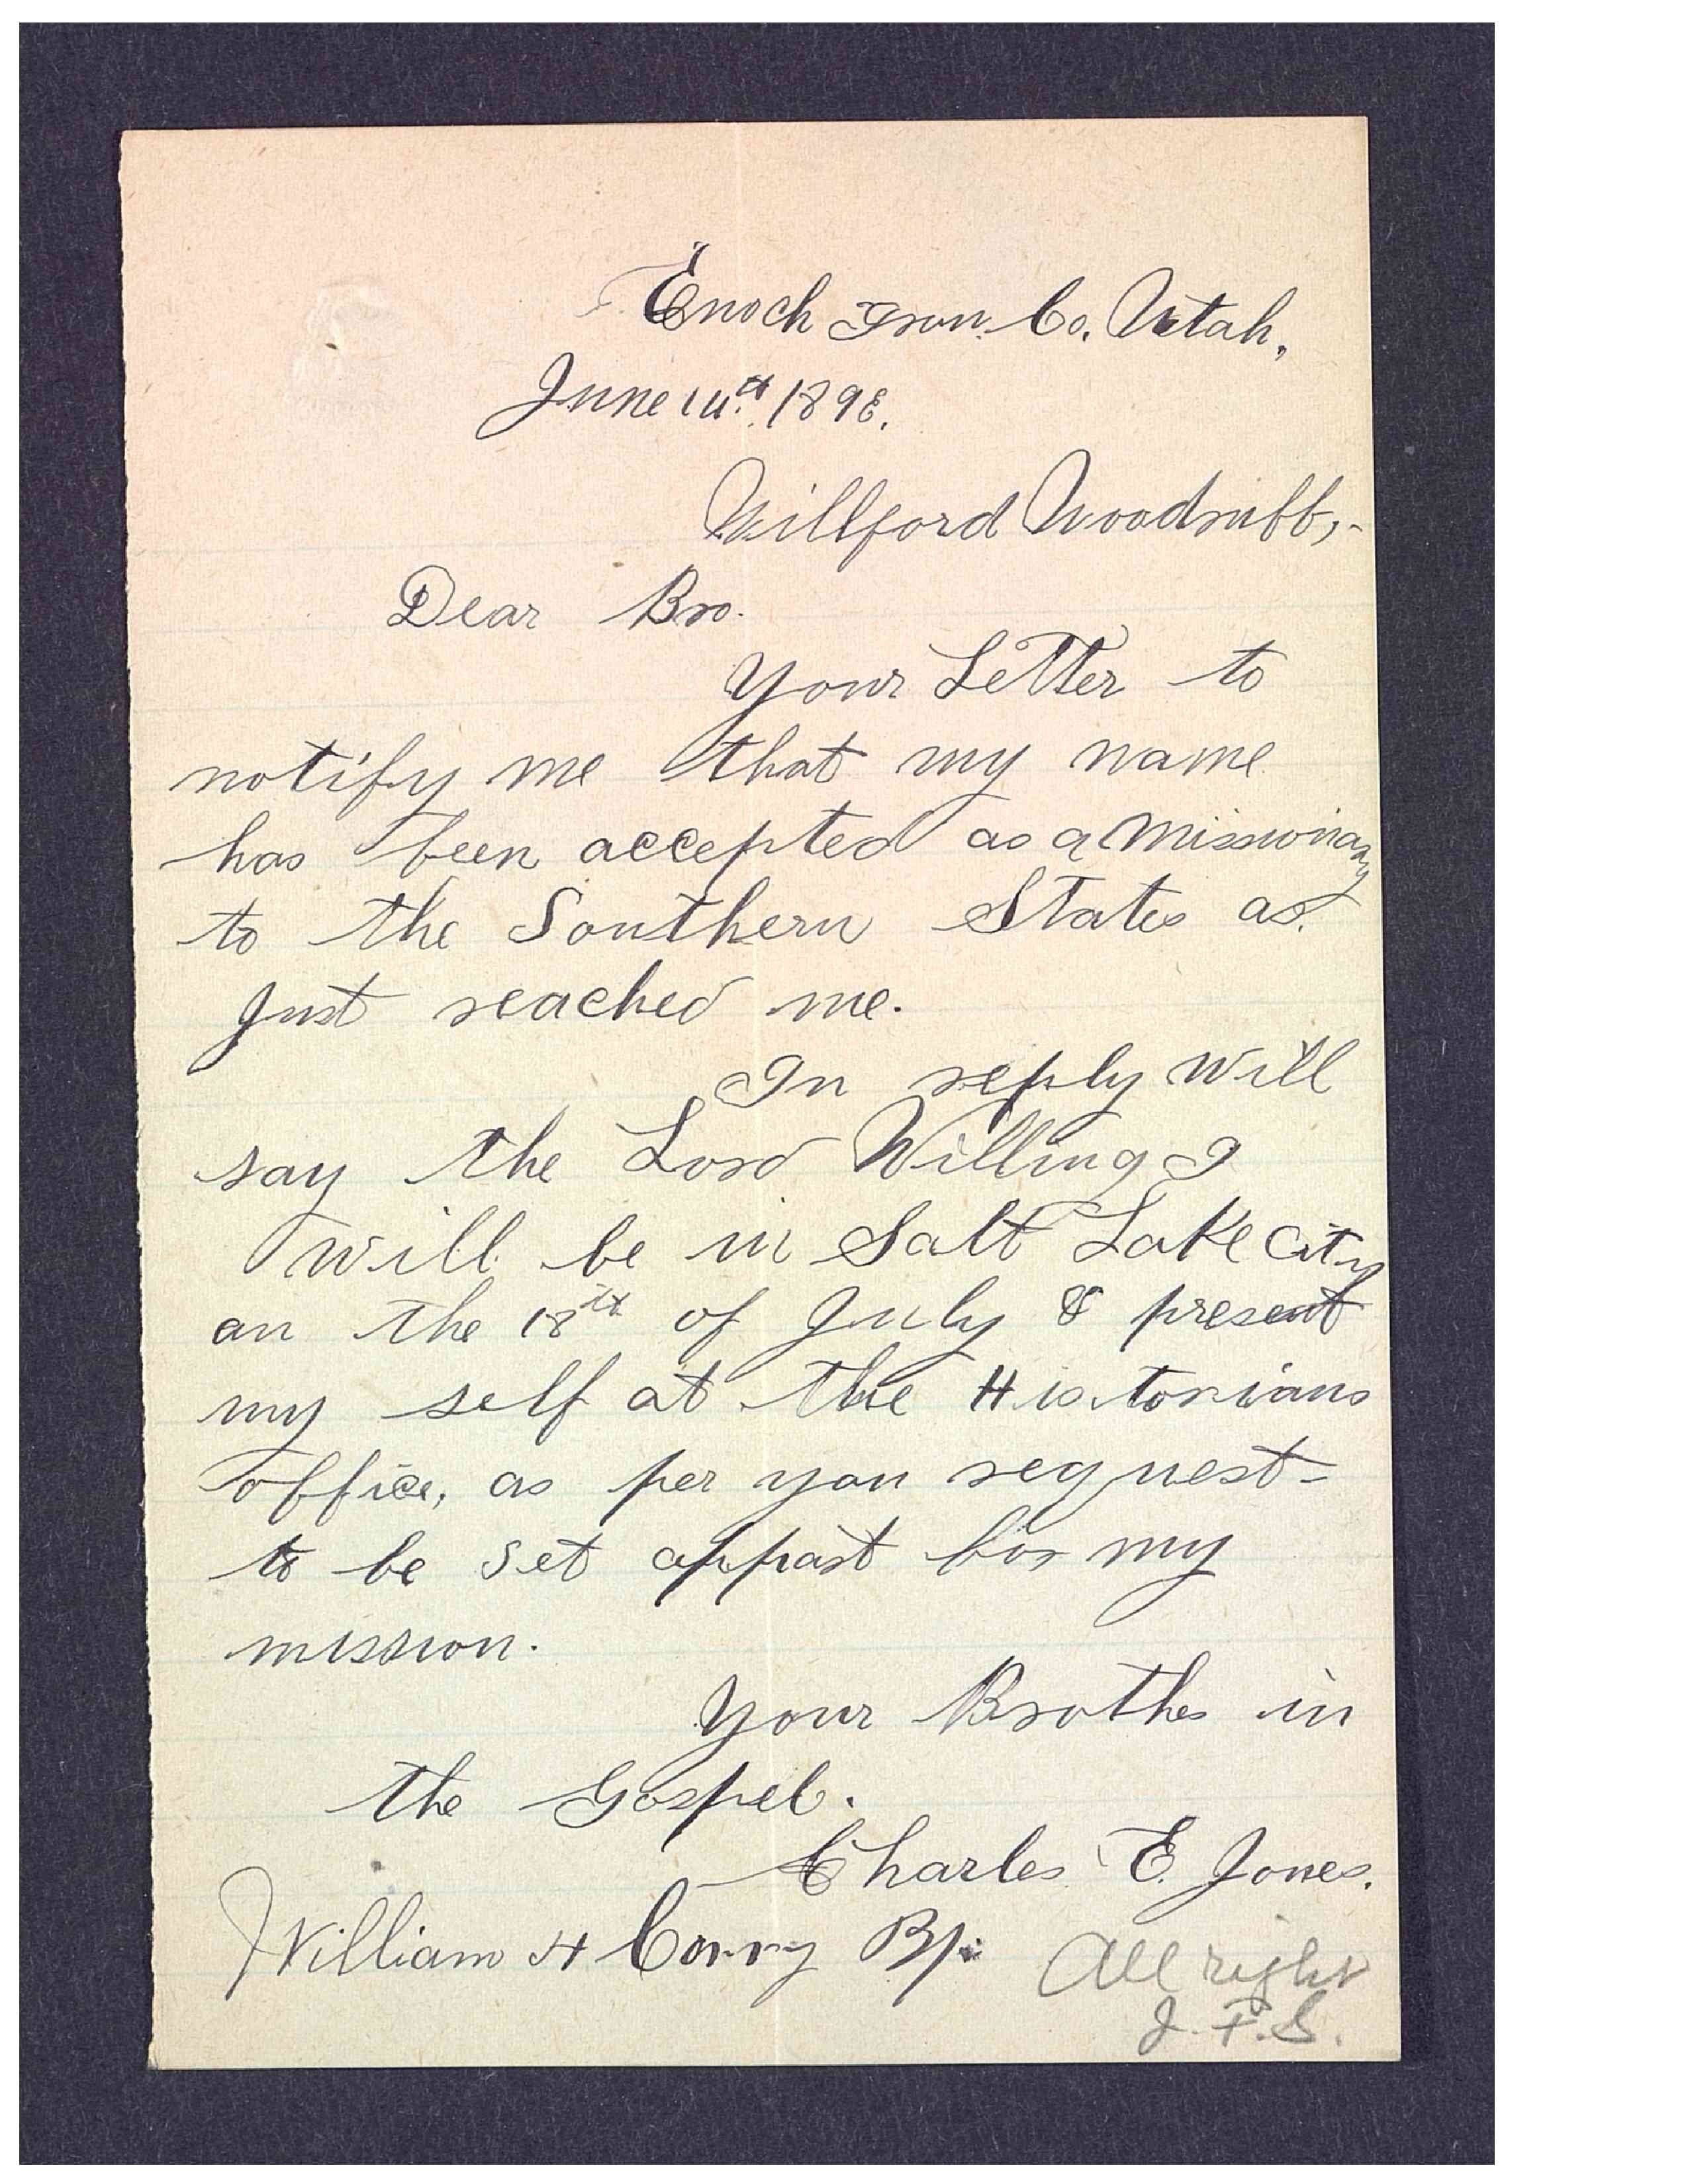 Enoch Iron Co. Utah,
June 14th 1898.
Willford Woodruff,-
Dear Bro.
Your Letter to
notify me that my name
has been accepted as a missionary
to the Southern States as
Just reached me.
In reply will
say the Lord Willing I
will be in Salt Lake City
an the 18th of July & present
my self at the Historians
office, as per you request-
to be set appart for my
mission.
Your Brother in
the Gospel.
Charles E. Jones.
William H Corry Bp.
All right
J. F. S.